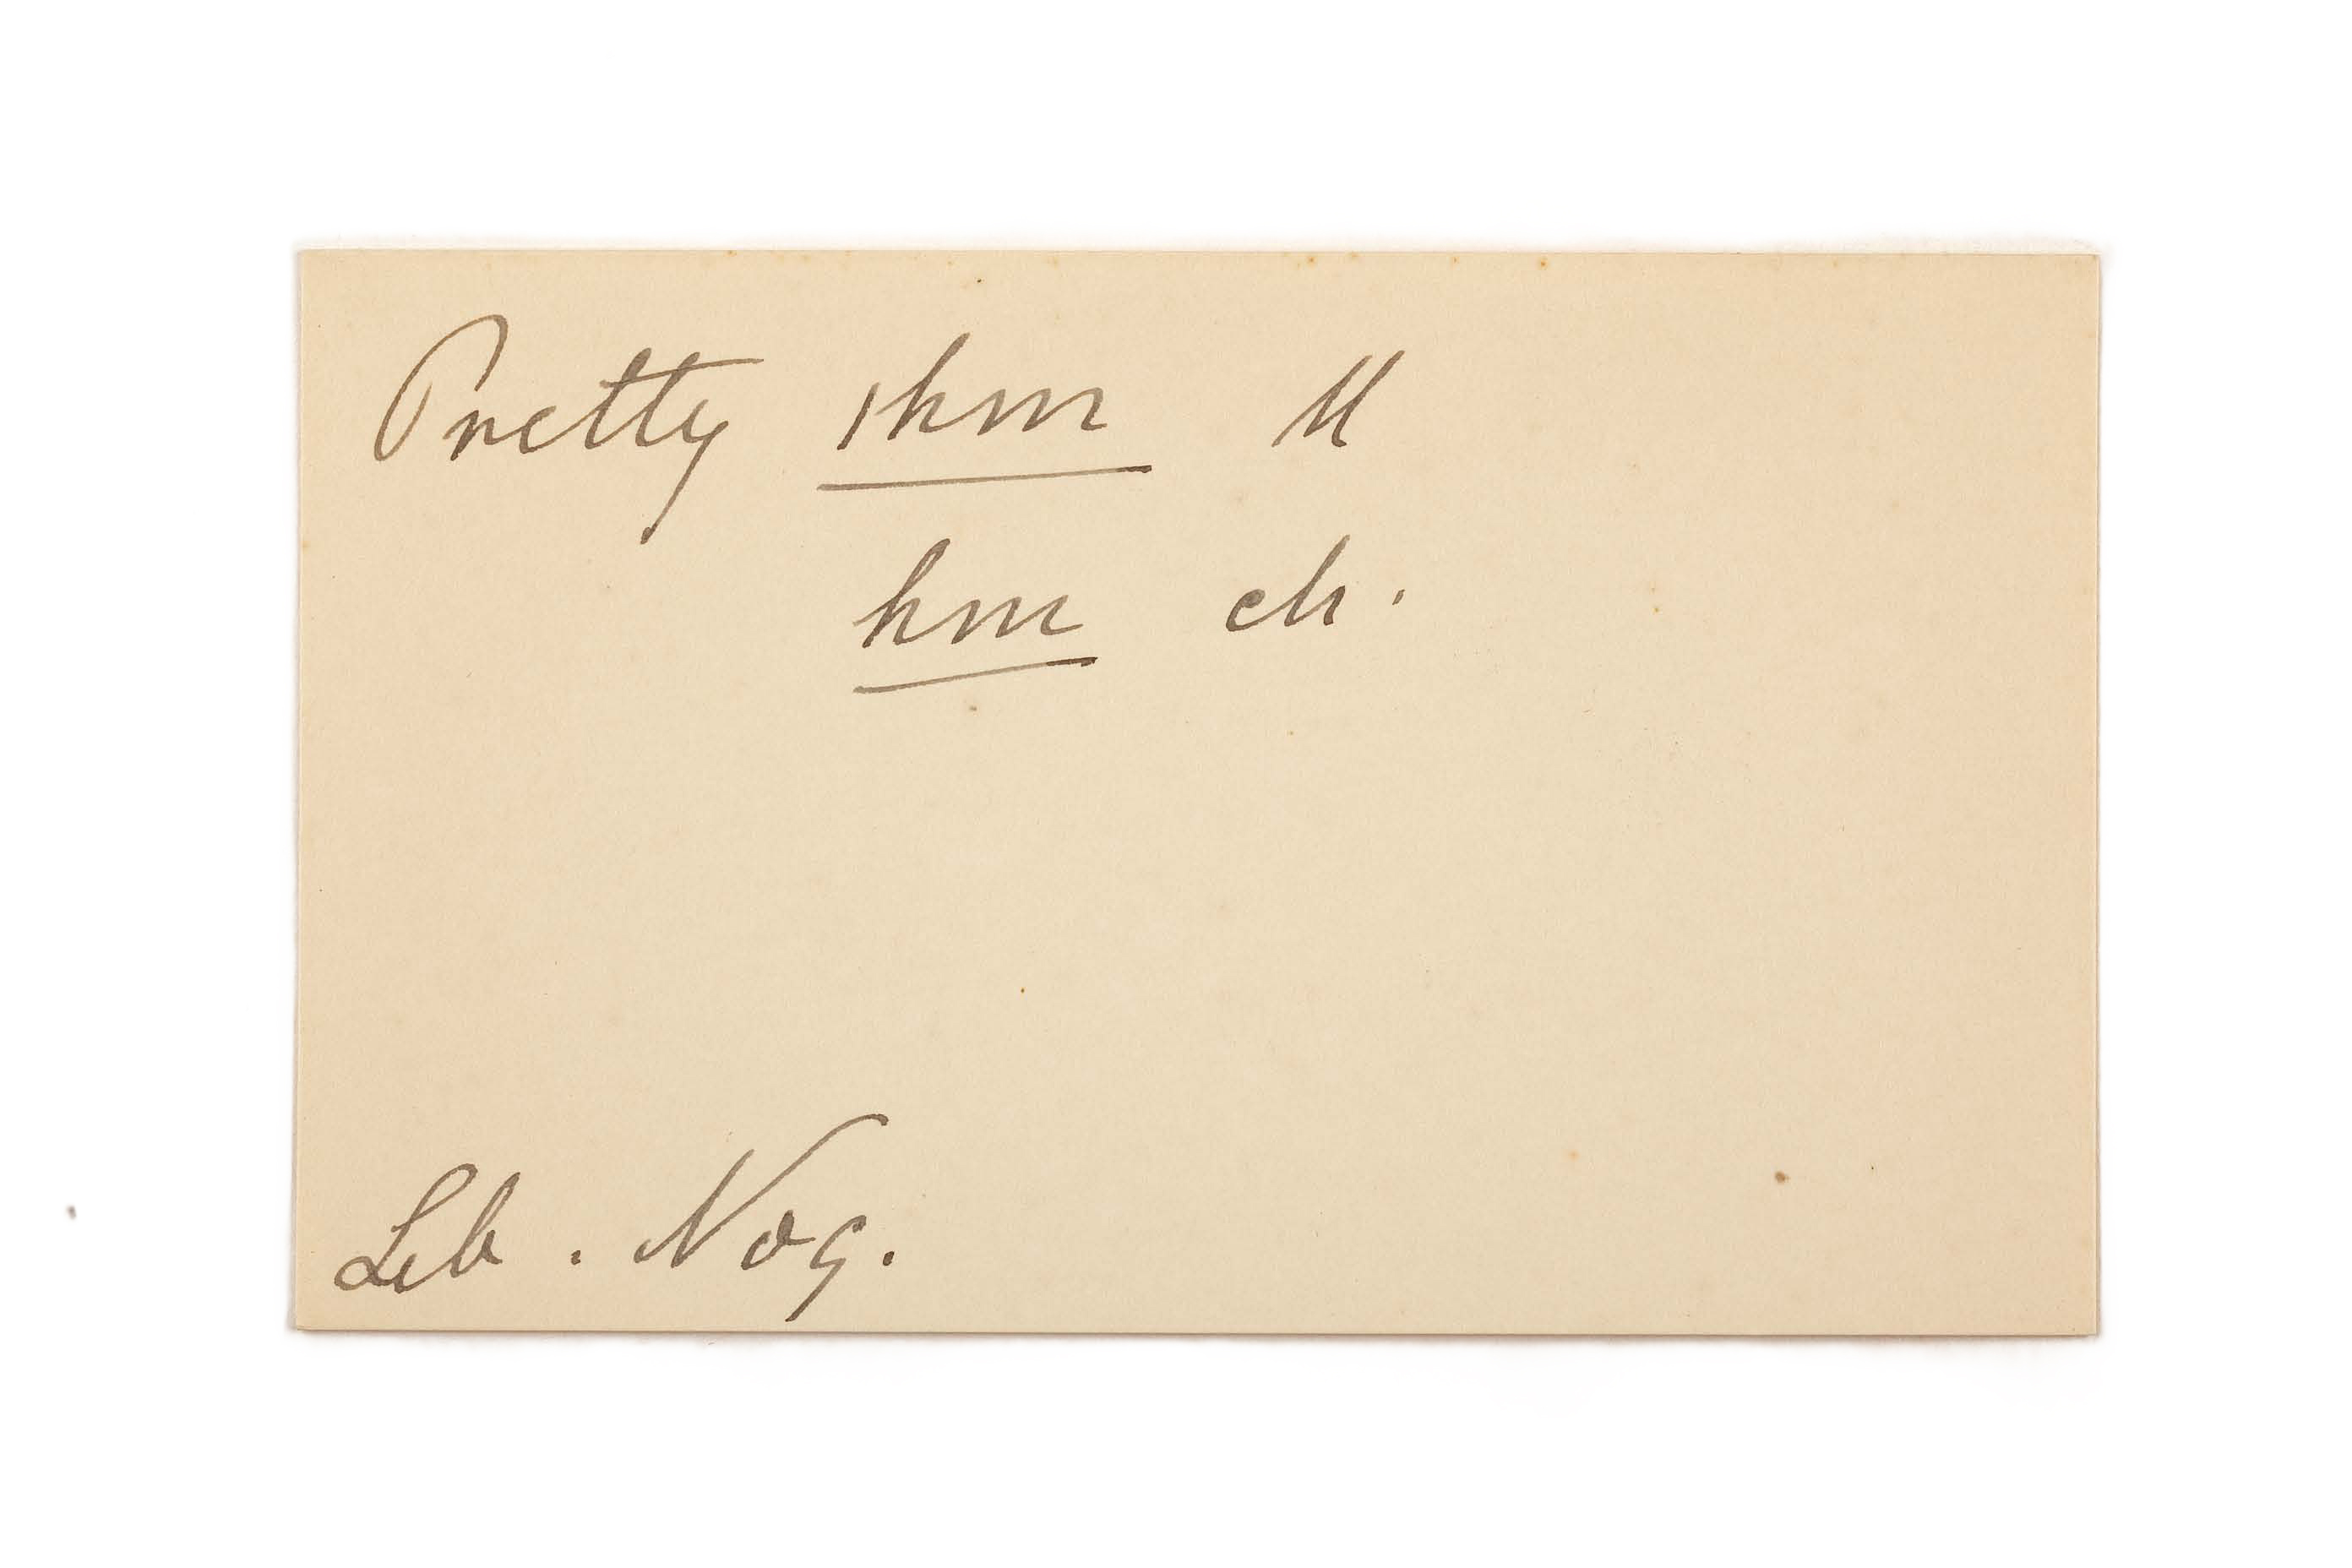 Pretty ıhm ll
hm ch.
Leb. Nog.